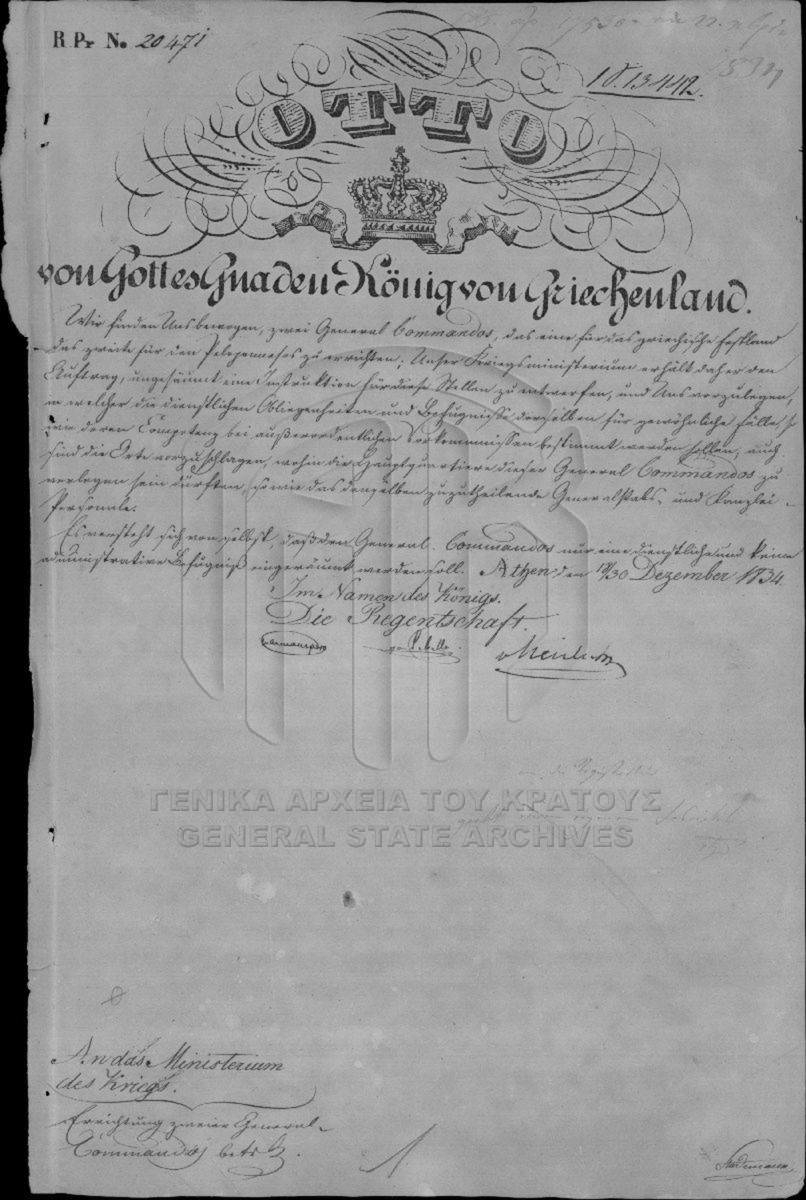 R. Pr. No. 20471
18.13442.
OTTO
von Gottes Gnaden König von Griechenland.
Wir finden Uns bewogen, zwei General Commandos, das eine für das griechische Festland
das zweite für den Peloponnesos zu errichten; Unser Kriegsministerium erhält daher den
Auftrag, ungesäumt eine Instruktion für diese Stellen zu entwerfen, und Uns vorzulegen,
in welcher die dienstlichen Obliegenheiten und Befugnisse derselben für gewöhnliche Fälle,
wie deren Competenz bei außerordentlichen Vorkommnissen bestimmt werden sollen, auch
sind die Orte vorzuschlagen, wohin die Hauptquartiere dieser General Commandos zu
verlegen sein dürften, so wie das denselben zuzutheilende Generalstabs- und Kanzlei-
Personale.
Es versteht sich von selbst, daß den General-Commandos nur eine dienstliche und keine
administrative Befugniß eingeräumt werden soll. Athen den 18/30 Dezember 1834.
Im Namen des Königs.
Die Regentschaft.
ΓΕΝΙΚΑ ΑΡΧΕΙΑ ΤΟΥ ΚΡΑΤΟΥΣ
GENERAL STATE ARCHIVES
An das Ministerium
des Kriegs.
Errichtung zweier General-
Commandos betr.